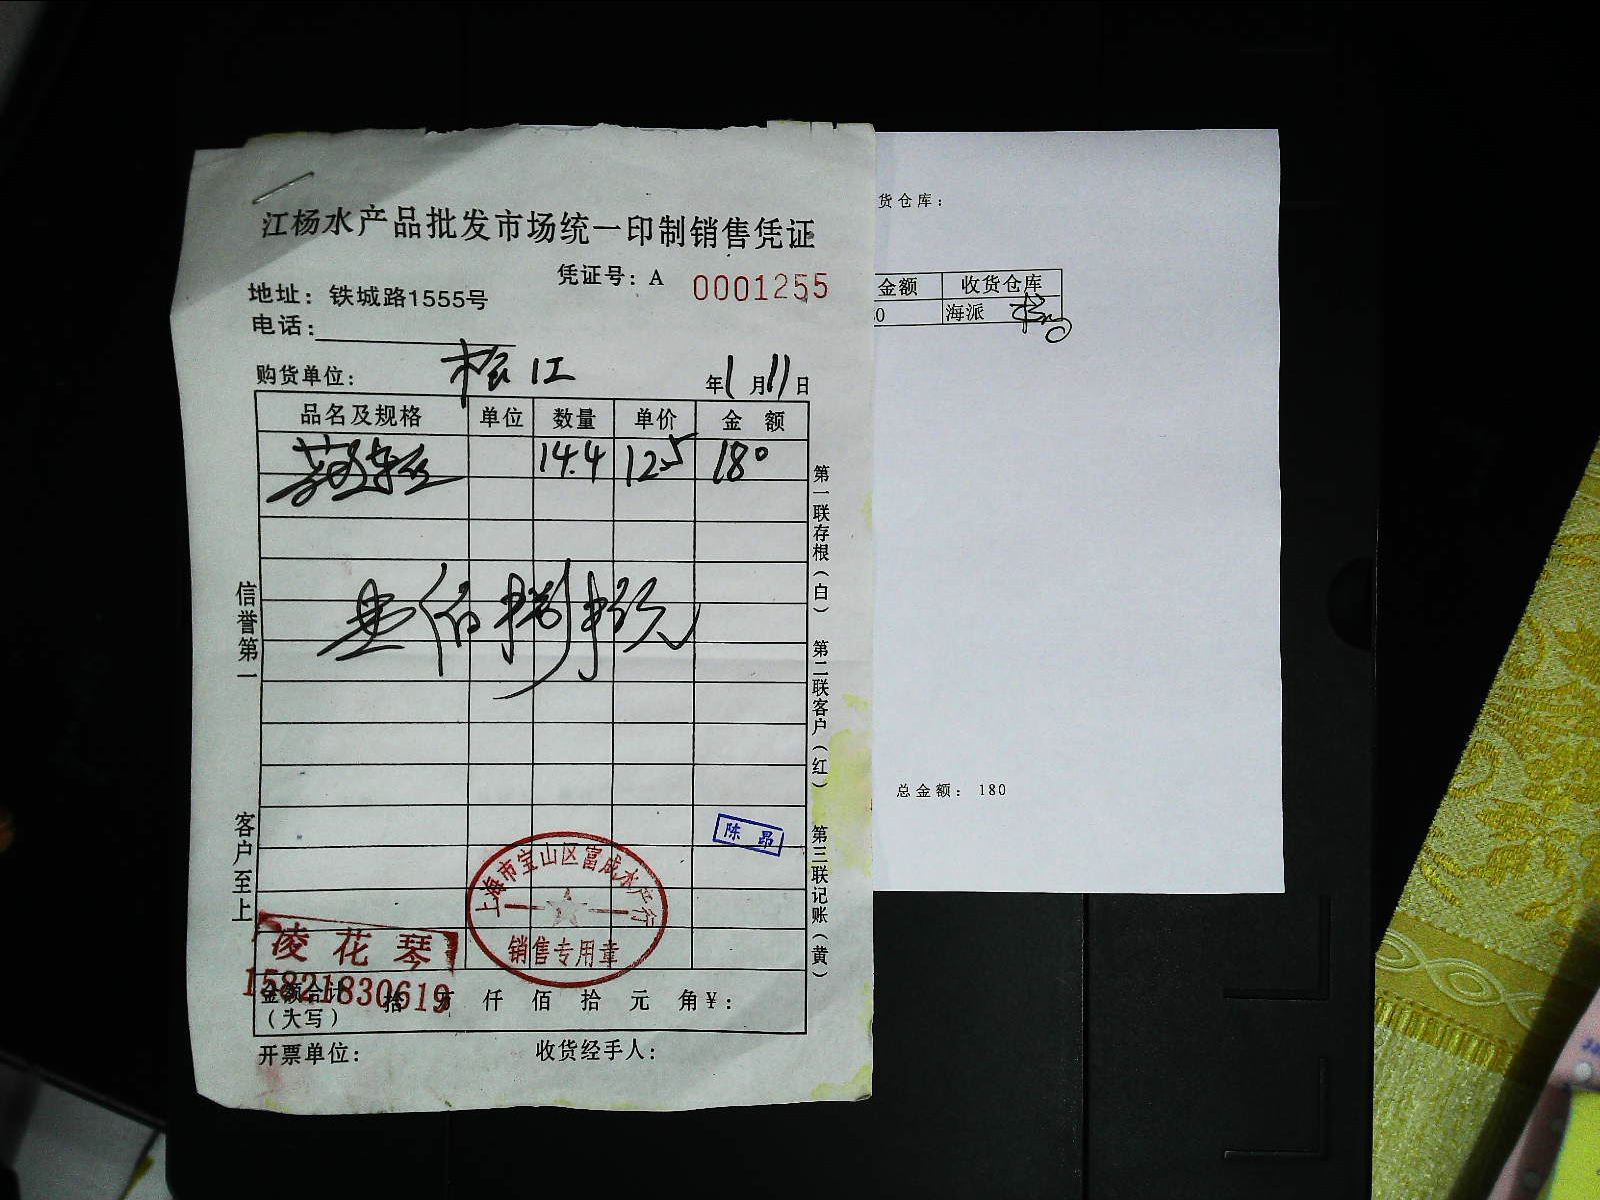 江杨水产品批发市场统一印制销售凭证
凭证号：A 0001255
地址：铁城路1555号
电话：
购货单位： 松江 年1月11日
品名及规格 单位 数量 单价 金 额
14.4 12.5 180
壹佰捌拾元
信誉第一
客户至上
第一联存根（白）
第二联客户（红）
第三联记账（黄）
陈 昂
上海市宝山区富成水产行
销售专用章
凌花琴
15821830619
金额合计 拾 万 仟 佰 拾 元 角￥：
（大写）
开票单位： 收货经手人：
货仓库：
金额 收货仓库
0 海派
总金额： 180